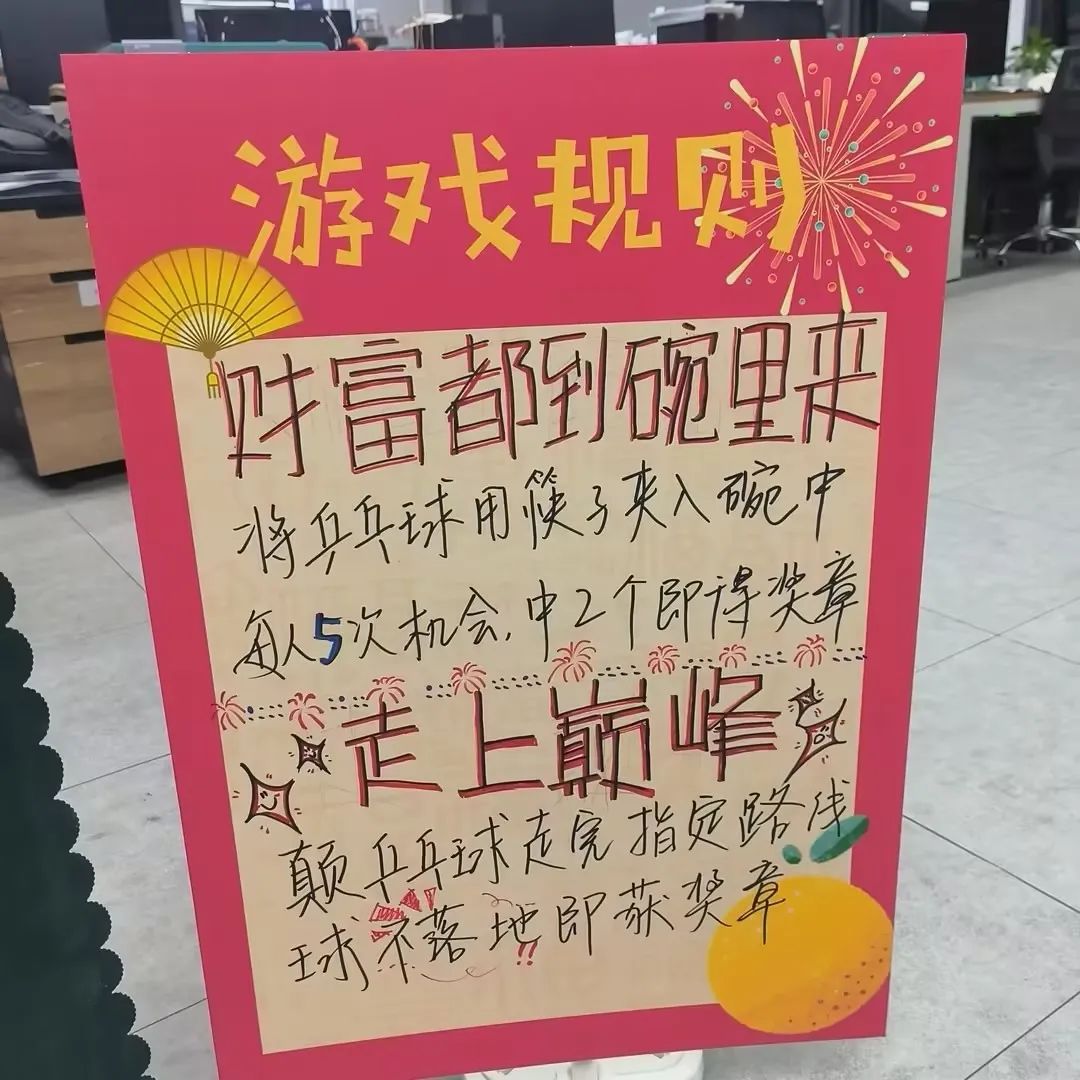 游戏规则
财富都到碗里来
将乒乓球用筷子夹入碗中
每人5次机会,中2个即得奖章
走上巅峰
颠乒乓球走完指定路线
球不落地即获奖章
!!